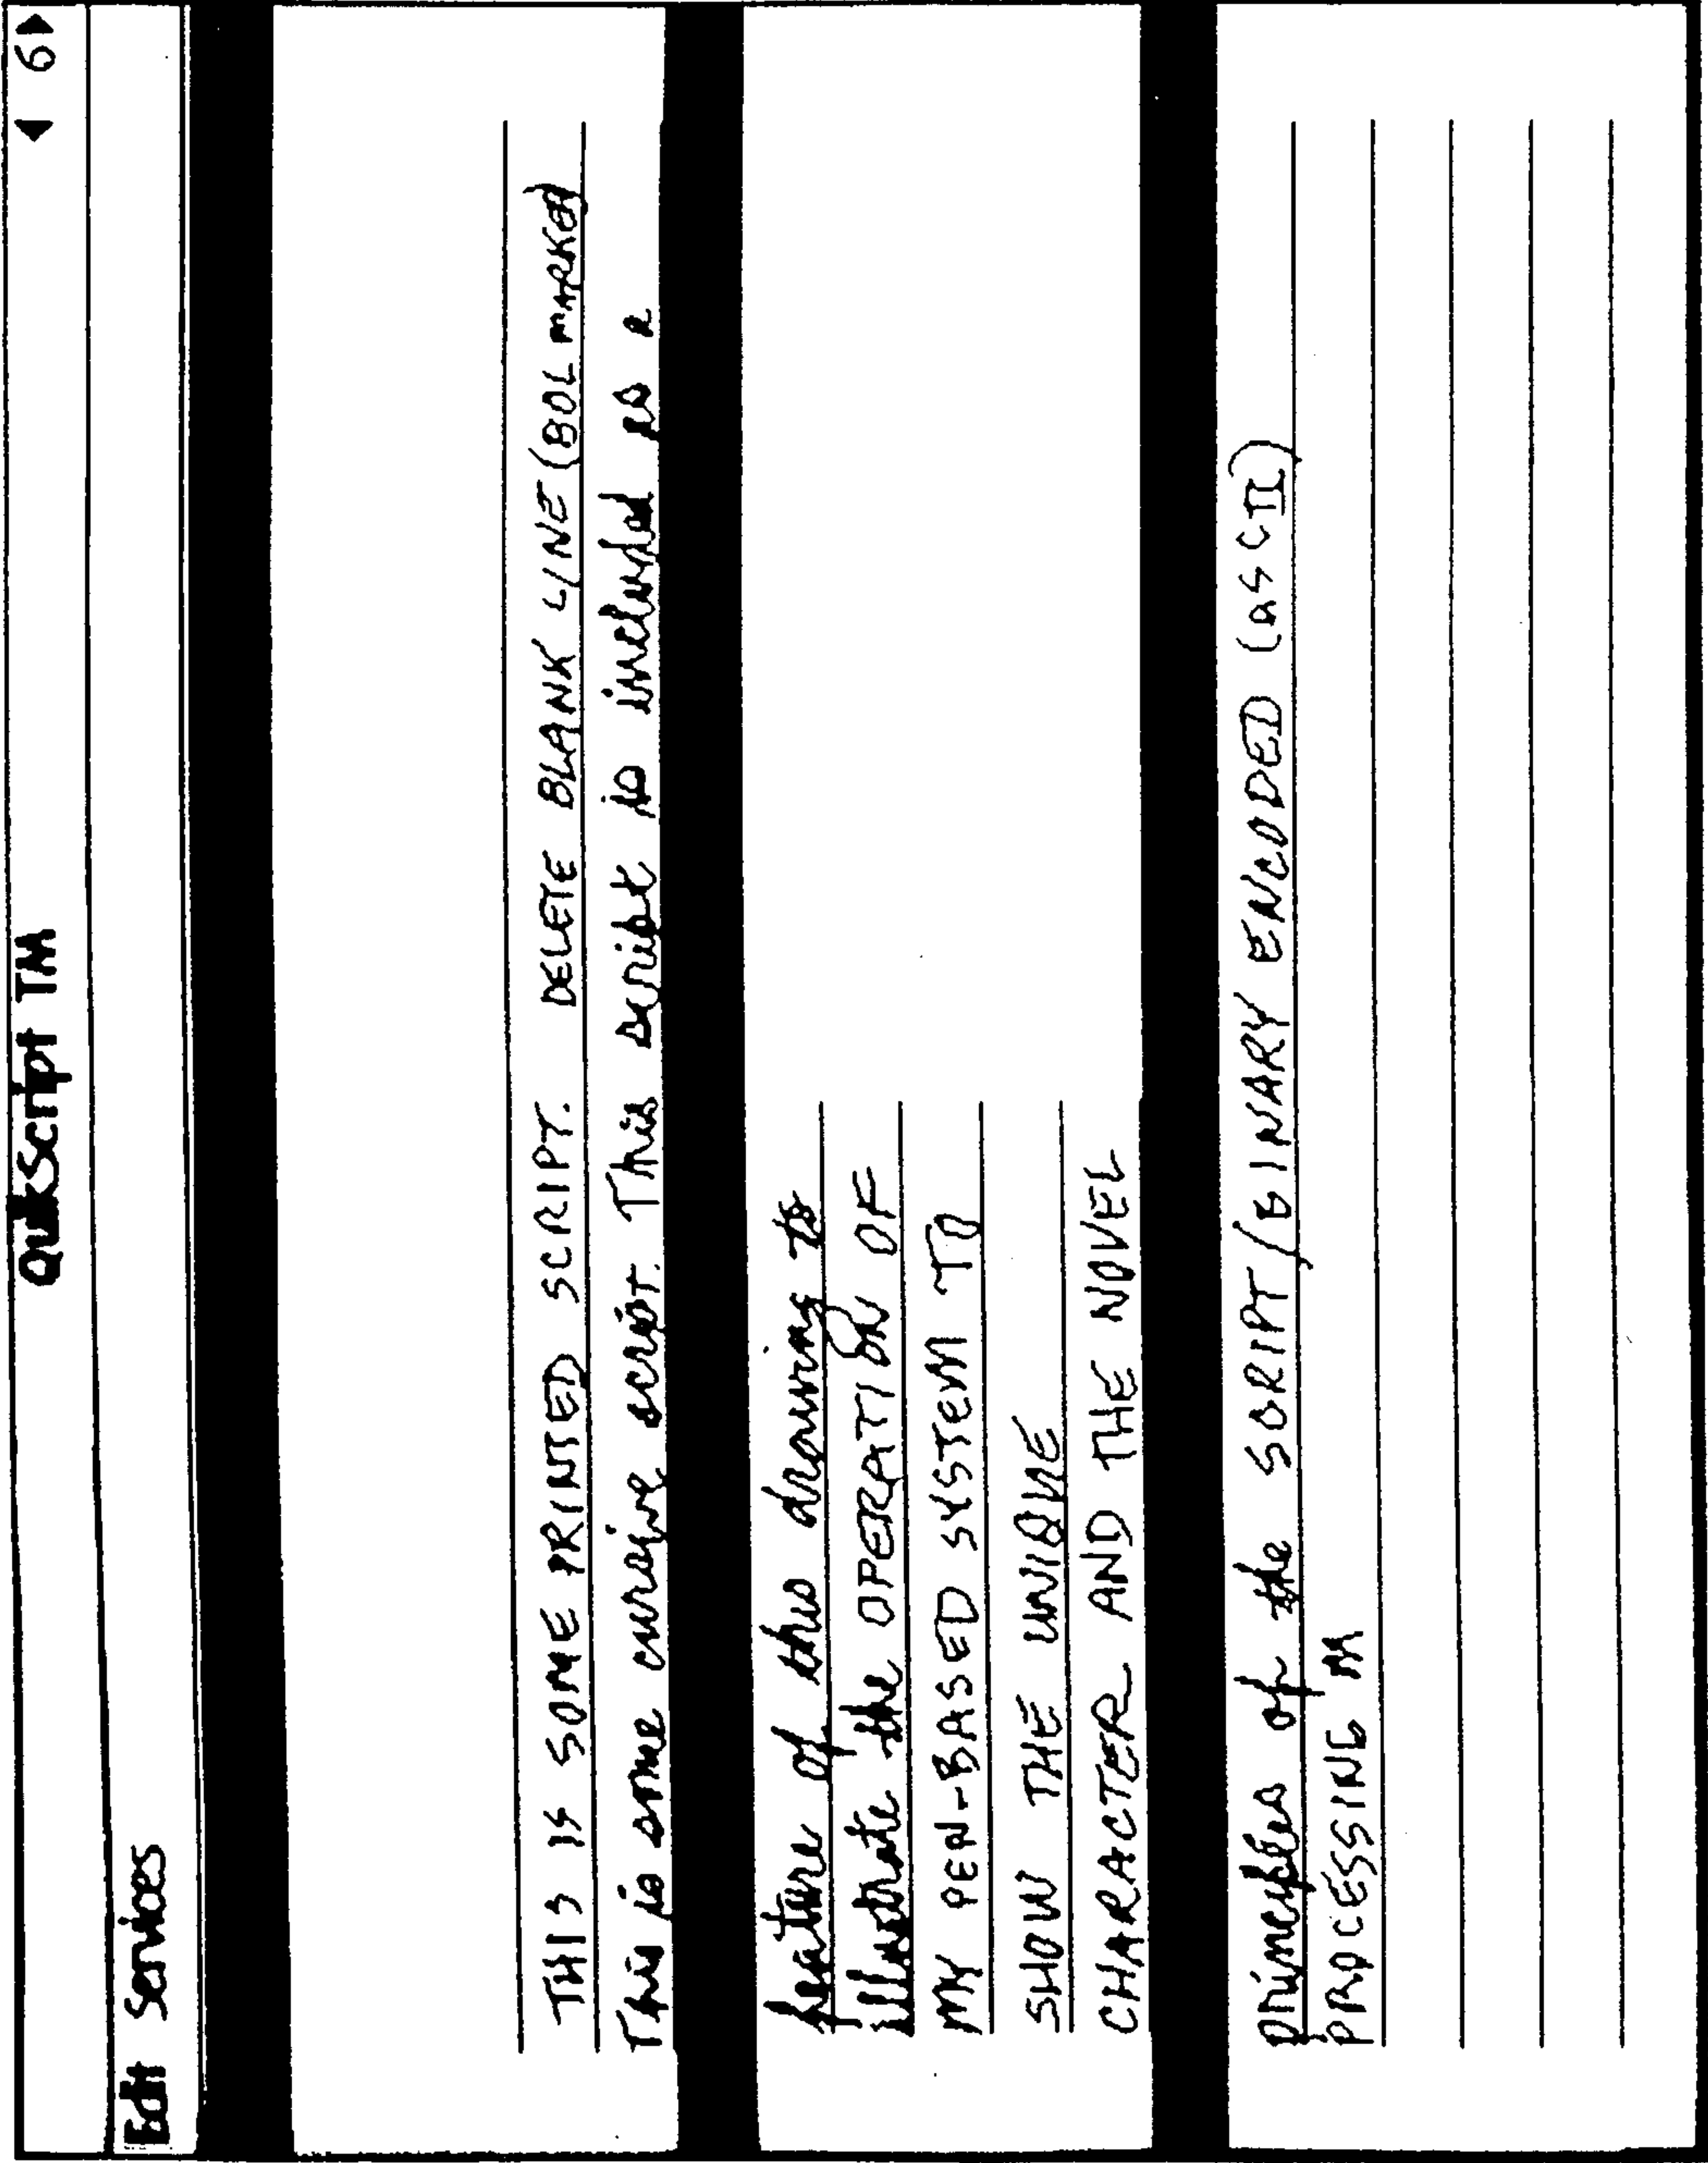 QuikScript TM ◀ 6▶
Edit Services
THIS IS SOME PRINTED SCRIPT. DELETE BLANK LINE (BOL MARKED)
This is some cursive script. This script is included as a
feature of this drawing to
illustrate the OPERATION OF
MY PEN-BASED SYSTEM TO
SHOW THE UNIQUE
CHARACTER AND THE NOVEL
principles of the SCRIPT/BINARY ENCODED (ASCII)
PROCESSING M